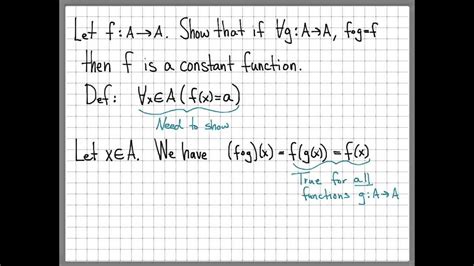 Let f:A→A. Show that if ∀g:A→A, f∘g=f
then f is a constant function.
Def: ∀x∈A(f(x)=a)
Need to show
Let x∈A. We have (f∘g)(x) = f(g(x)) = f(x)
True for all
functions g:A→A